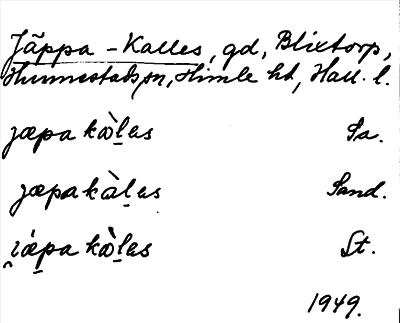 Jäppa-Kalles, gd, Blixtorp,
Hunnestads sn, Himle hd, Hall. l.
jæpa kàḻes Sa.
jæpa kàḻes Sand.
i̯ǽ̱pa kàḻes St.
1949.